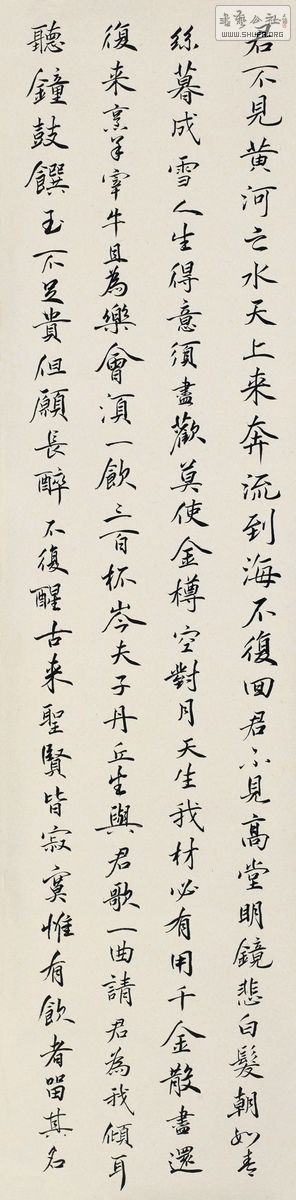 君不見黄河之水天上来奔流到海不復回君不見高堂明鏡悲白髮朝如青
絲暮成雪人生得意須盡歡莫使金樽空對月天生我材必有用千金散盡還
復来烹羊宰牛且為樂會須一飲三百杯岑夫子丹丘生與君歌一曲請君為我傾耳
聽鐘鼓饌玉不足貴但願長醉不復醒古来聖賢皆寂寞惟有飲者留其名
書藝公社
www.shufa.org